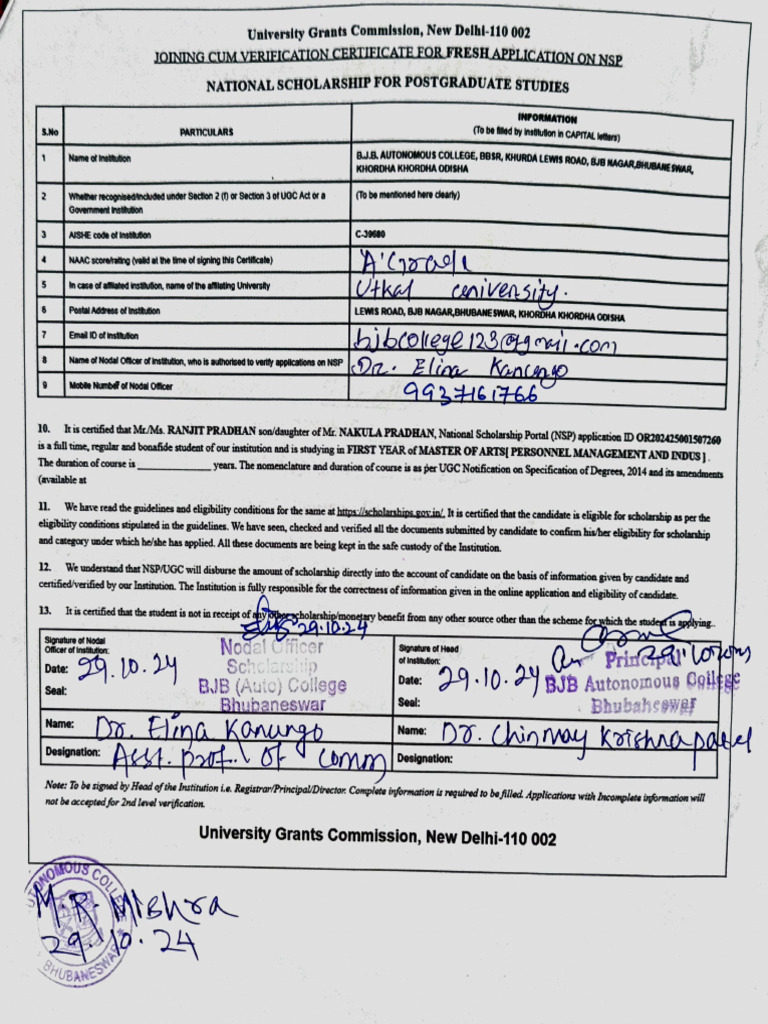 University Grants Commission, New Delhi-110 002
JOINING CUM VERIFICATION CERTIFICATE FOR FRESH APPLICATION ON NSP
NATIONAL SCHOLARSHIP FOR POSTGRADUATE STUDIES
S.No PARTICULARS INFORMATION
(To be filled by institution in CAPITAL letters)
1 Name of Institution B.J.B. AUTONOMOUS COLLEGE, BBSR, KHURDA LEWIS ROAD, BJB NAGAR,BHUBANESWAR,
KHORDHA KHORDHA ODISHA
2 Whether recognised/included under Section 2 (f) or Section 3 of UGC Act or a
Government Institution (To be mentioned here clearly)
3 AISHE code of Institution C-39680
4 NAAC score/rating (valid at the time of signing this Certificate) 'A' Grade
5 In case of affiliated institution, name of the affiliating University Utkal university.
6 Postal Address of Institution LEWIS ROAD, BJB NAGAR,BHUBANESWAR, KHORDHA KHORDHA ODISHA
7 Email ID of Institution bjbcollege123@gmail.com
8 Name of Nodal Officer of Institution, who is authorised to verify applications on NSP Dr. Elina Kanungo
9 Mobile Number of Nodal Officer 9937161766
10. It is certified that Mr./Ms. RANJIT PRADHAN son/daughter of Mr. NAKULA PRADHAN, National Scholarship Portal (NSP) application ID OR202425001507260
is a full time, regular and bonafide student of our institution and is studying in FIRST YEAR of MASTER OF ARTS[ PERSONNEL MANAGEMENT AND INDUS ] .
The duration of course is ____________ years. The nomenclature and duration of course is as per UGC Notification on Specification of Degrees, 2014 and its amendments
(available at
11. We have read the guidelines and eligibility conditions for the same at https://scholarships.gov.in/. It is certified that the candidate is eligible for scholarship as per the
eligibility conditions stipulated in the guidelines. We have seen, checked and verified all the documents submitted by candidate to confirm his/her eligibility for scholarship
and category under which he/she has applied. All these documents are being kept in the safe custody of the Institution.
12. We understand that NSP/UGC will disburse the amount of scholarship directly into the account of candidate on the basis of information given by candidate and
certified/verified by our Institution. The Institution is fully responsible for the correctness of information given in the online application and eligibility of candidate.
13. It is certified that the student is not in receipt of any other scholarship/monetary benefit from any other source other than the scheme for which the student is applying..
29.10.24
Signature of Nodal
Officer of Institution:
Date: 29.10.24
Seal:
Nodal Officer
Scholarship
BJB (Auto) College
Bhubaneswar
Signature of Head
of Institution:
Date: 29.10.24
Seal:
Principal
BJB Autonomous College
Bhubaneswar
Name: Dr. Elina Kanungo
Name: Dr. Chinmay Krishna patel
Designation: Asst. prof. of comm
Designation:
Note: To be signed by Head of the Institution i.e. Registrar/Principal/Director. Complete information is required to be filled. Applications with Incomplete information will
not be accepted for 2nd level verification.
University Grants Commission, New Delhi-110 002
AUTONOMOUS COLLEGE
M.R. Mishra
29.10.24
BHUBANESWAR